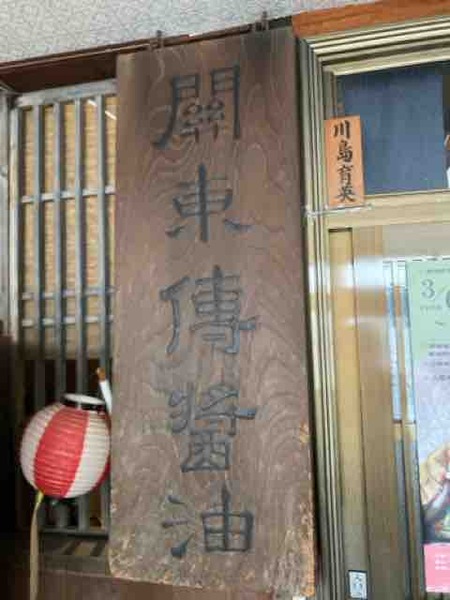 關東傳醤油
川島育英
3/